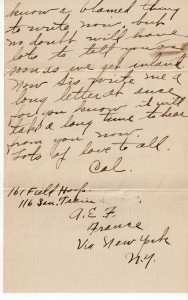 know a blamed thing
to write now, but
no doubt will have
lots to tell you as
soon as we get inland
Now Sis write me a
long letter at once
for you know it will
take a long time to hear
from you now.
Lots of love to all.
Cal.
161 Field Hosp.
116 San. Train
A.E.F.
France
Via New York
N.Y.